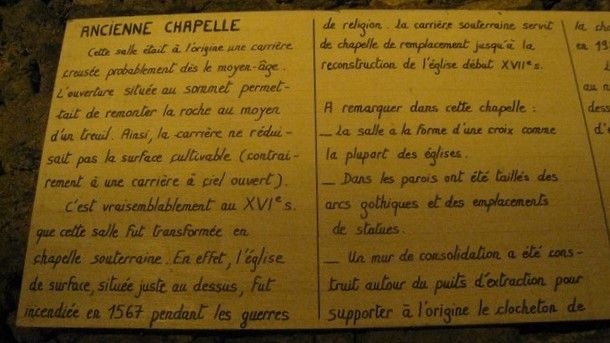 ANCIENNE CHAPELLE
Cette salle était à l'origine une carrière
creusée probablement dès le moyen-âge.
L'ouverture située au sommet permet-
tait de remonter la roche au moyen
d'un treuil. Ainsi, la carrière ne rédui-
sait pas la surface cultivable (contrai-
rement à une carrière à ciel ouvert).
C'est vraisemblablement au XVIe s.
que cette salle fut transformée en
chapelle souterraine. En effet, l'église
de surface, située juste au dessus, fut
incendiée en 1567 pendant les guerres
de religion. La carrière souterraine servit
de chapelle de remplacement jusqu'à la
reconstruction de l'église début XVIIe s.
A remarquer dans cette chapelle :
_ La salle à la forme d'une croix comme
la plupart des églises.
_ Dans les parois ont été taillés des
arcs gothiques et des emplacements
de statues.
_ Un mur de consolidation a été cons-
truit autour du puits d'extraction pour
supporter à l'origine le clocheton de
la cha
en 19
au n
dess
d'